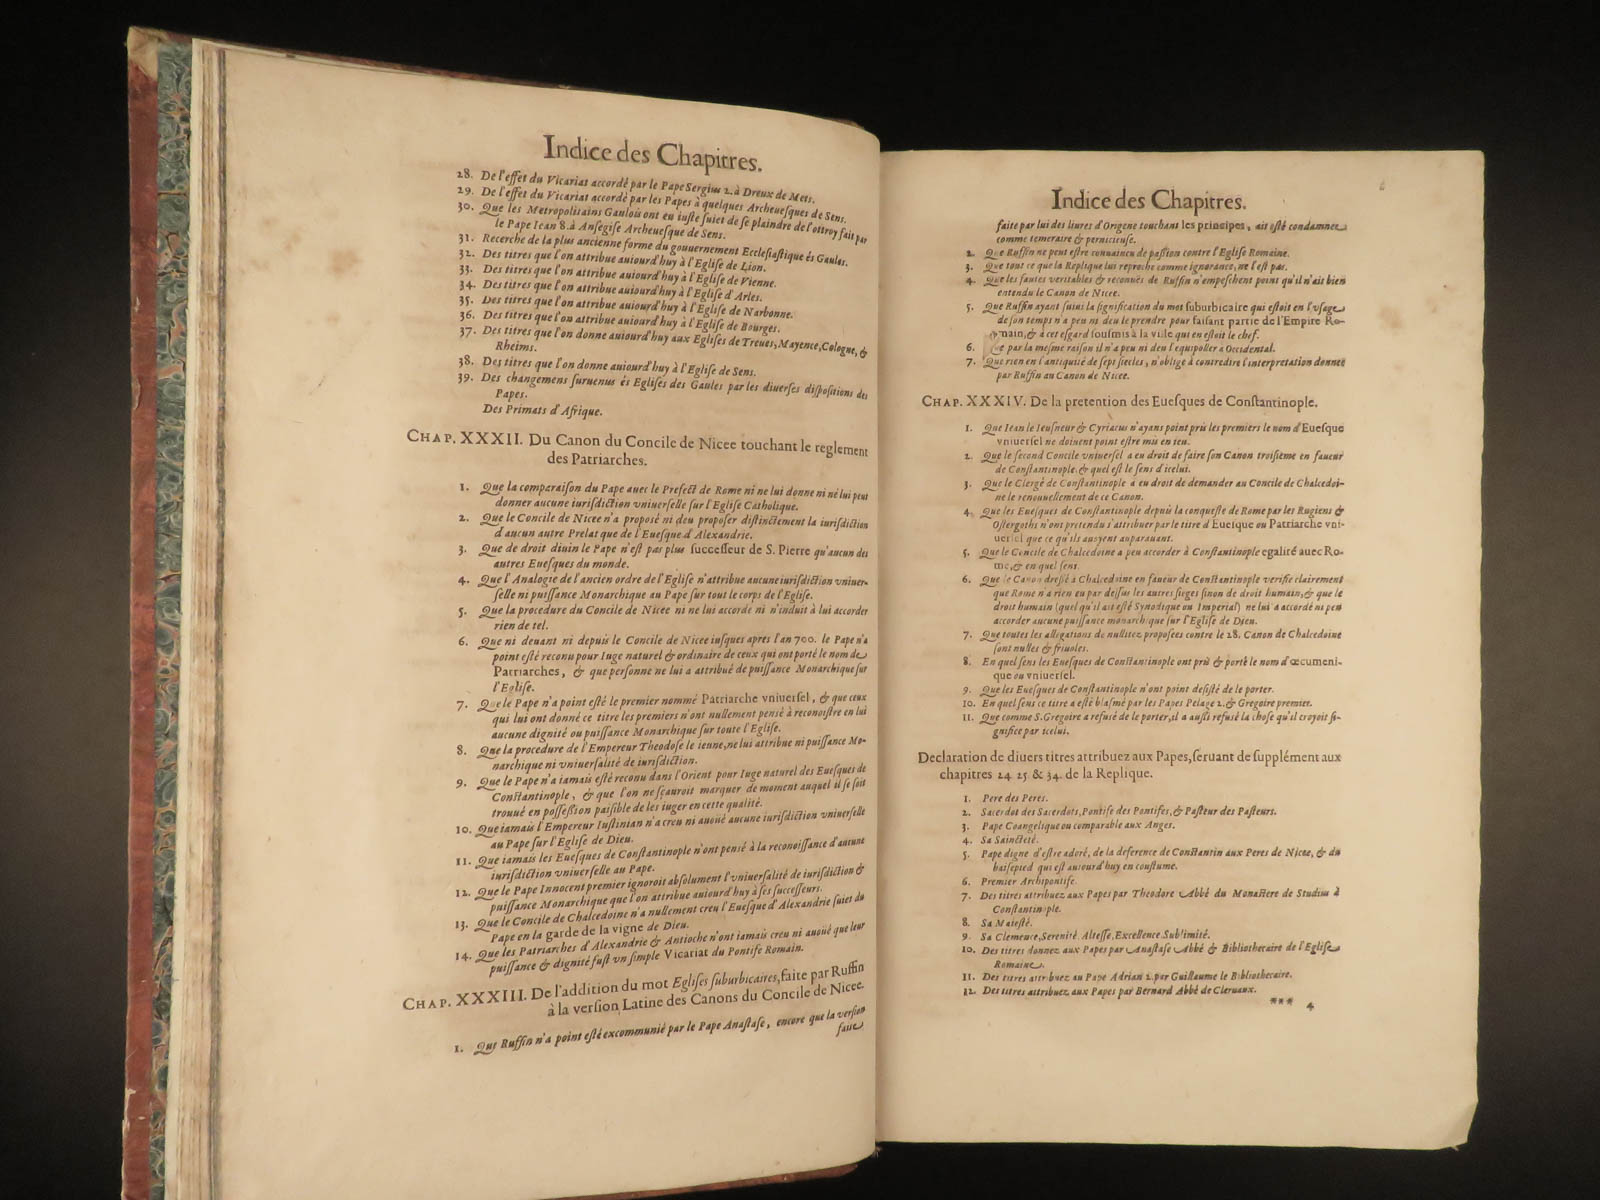 Indice des Chapitres.
28. De l'effet du Vicariat accordé par le Pape Sergius 2. à Dreux de Mets.
29. De l'effet du Vicariat accordé par les Papes à quelques Archeuesques de Sens.
30. Que les Metropolitains Gaulois ont eu iuste suiet de se plaindre de l'ottroy fait par
le Pape Iean 8. à Ansegise Archeuesque de Sens.
31. Recerche de la plus ancienne forme du gouuernement Ecclesiastique és Gaules.
32. Des titres que l'on attribue auiourd'huy à l'Eglise de Lion.
33. Des titres que l'on attribue auiourd'huy à l'Eglise de Vienne.
34. Des titres que l'on attribue auiourd'huy à l'Eglise d'Arles.
35. Des titres que l'on attribue auiourd'huy à l'Eglise de Narbonne.
36. Des titres que l'on attribue auiourd'huy à l'Eglise de Bourges.
37. Des titres que l'on donne auiourd'huy aux Eglises de Treues, Mayence, Cologne, &
Rheims.
38. Des titres que l'on donne auiourd'huy à l'Eglise de Sens.
39. Des changemens suruenus és Eglises des Gaules par les diuerses dispositions des
Papes.
Des Primats d'Afrique.
CHAP. XXXII. Du Canon du Concile de Nicee touchant le reglement
des Patriarches.
1. Que la comparaison du Pape auec le Prefect de Rome ni ne lui donne ni ne lui peut
donner aucune iurisdiction vniuerselle sur l'Eglise Catholique.
2. Que le Concile de Nicee n'a proposé ni deu proposer distinctement la iurisdiction
d'aucun autre Prelat que de l'Euesque d'Alexandrie.
3. Que de droit diuin le Pape n'est pas plus successeur de S. Pierre qu'aucun des
autres Euesques du monde.
4. Que l'Analogie de l'ancien ordre de l'Eglise n'attribue aucune iurisdiction vniuer-
selle ni puissance Monarchique au Pape sur tout le corps de l'Eglise.
5. Que la procedure du Concile de Nicee ni ne lui accorde ni n'induit à lui accorder
rien de tel.
6. Que ni deuant ni depuis le Concile de Nicee iusques apres l'an 700. le Pape n'a
point esté reconu pour Iuge naturel & ordinaire de ceux qui ont porté le nom de
Patriarches, & que personne ne lui a attribué de puissance Monarchique sur
l'Eglise.
7. Que le Pape n'a point esté le premier nommé Patriarche vniuersel, & que ceux
qui lui ont donné ce titre les premiers n'ont nullement pensé à reconoistre en lui
aucune dignité ou puissance Monarchique sur toute l'Eglise.
8. Que la procedure de l'Empereur Theodose le ieune, ne lui attribue ni puissance Mo-
narchique ni vniuersalité de iurisdiction.
9. Que le Pape n'a iamais esté reconu dans l'Orient pour Iuge naturel des Euesques de
Constantinople, & que l'on ne sçauroit marquer de moment auquel il se soit
trouué en possession paisible de les iuger en cette qualité.
10. Que iamais l'Empereur Iustinian n'a creu ni auoué aucune iurisdiction vniuerselle
au Pape sur l'Eglise de Dieu.
11. Que iamais les Euesques de Constantinople n'ont pensé à la reconoissance d'aucune
iurisdiction vniuerselle au Pape.
12. Que le Pape Innocent premier ignoroit absolument l'vniuersalité de iurisdiction &
puissance Monarchique que l'on attribue auiourd'huy à ses successeurs.
13. Que le Concile de Chalcedoine n'a nullement creu l'Euesque d'Alexandrie suiet du
Pape en la garde de la vigne de Dieu.
14. Que les Patriarches d'Alexandrie & Antioche n'ont iamais creu ni auoué que leur
puissance & dignité fust vn simple Vicariat du Pontife Romain.
CHAP. XXXIII. De l'addition du mot Eglises suburbicaires, faite par Ruffin
à la version Latine des Canons du Concile de Nicee.
1. Que Ruffin n'a point esté excommunié par le Pape Anastase, encore que la version
faite
Indice des Chapitres.
faite par lui des liures d'Origene touchant les principes, ait esté condamnee
comme temeraire & pernicieuse.
2. Que Ruffin ne peut estre conuaincu de passion contre l'Eglise Romaine.
3. Que tout ce que la Replique lui reproche comme ignorance, ne l'est pas.
4. Que les fautes veritables & reconues de Ruffin n'empeschent point qu'il n'ait bien
entendu le Canon de Nicee.
5. Que Ruffin ayant suiui la signification du mot suburbicaire qui estoit en l'vsage
de son temps n'a peu ni deu le prendre pour faisant partie de l'Empire Ro-
main, & à cet esgard sousmis à la ville qui en estoit le chef.
6. Que par la mesme raison il n'a peu ni deu l'equipoller à Occidental.
7. Que rien en l'antiquité de sept siecles, n'oblige à contredire l'interpretation donnee
par Ruffin au Canon de Nicee.
CHAP. XXXIV. De la pretention des Euesques de Constantinople.
1. Que Iean le Ieusneur & Cyriacus n'ayans point pris les premiers le nom d'Euesque
vniuersel ne doiuent point estre mis en ieu.
2. Que le second Concile vniuersel a eu droit de faire son Canon troisiéme en faueur
de Constantinople, & quel est le sens d'icelui.
3. Que le Clergé de Constantinople a eu droit de demander au Concile de Chalcedoi-
ne le renouuellement de ce Canon.
4. Que les Euesques de Constantinople depuis la conqueste de Rome par les Rugiens &
Ostergoths n'ont pretendu s'attribuer par le titre d'Euesque ou Patriarche vni-
uersel que ce qu'ils auoyent auparauant.
5. Que le Concile de Chalcedoine a peu accorder à Constantinople egalité auec Ro-
me, & en quel sens.
6. Que le Canon dressé à Chalcedoine en faueur de Constantinople verifie clairement
que Rome n'a rien eu par dessus les autres sieges sinon de droit humain, & que le
droit humain (quel qu'il ait esté Synodique ou Imperial) ne lui a accordé ni peu
accorder aucune puissance monarchique sur l'Eglise de Dieu.
7. Que toutes les allegations de nullitez proposees contre le 28. Canon de Chalcedoine
sont nulles & friuoles.
8. En quel sens les Euesques de Constantinople ont pris & porté le nom d'œcumeni-
que ou vniuersel.
9. Que les Euesques de Constantinople n'ont point desisté de le porter.
10. En quel sens ce titre a esté blasmé par les Papes Pelage 2. & Gregoire premier.
11. Que comme S. Gregoire a refusé de le porter, il a aussi refusé la chose qu'il croyoit si-
gnifiee par icelui.
Declaration de diuers titres attribuez aux Papes, seruant de supplément aux
chapitres 24 25 & 34. de la Replique.
1. Pere des Peres.
2. Sacerdot des Sacerdots, Pontife des Pontifes, & Pasteur des Pasteurs.
3. Pape Coangelique ou comparable aux Anges.
4. Sa Saincteté.
5. Pape digne d'estre adoré, de la deference de Constantin aux Peres de Nicee, & du
baisepied qui est auiourd'huy en coustume.
6. Premier Archipontife.
7. Des titres attribuez aux Papes par Theodore Abbé du Monastere de Studius à
Constantinople.
8. Sa Maiesté.
9. Sa Clemence, Serenité, Altesse, Excellence, Sublimité.
10. Des titres donnez aux Papes par Anastase Abbé & Bibliothecaire de l'Eglise
Romaine.
11. Des titres attribuez au Pape Adrian 2. par Guillaume le Bibliothecaire.
12. Des titres attribuez aux Papes par Bernard Abbé de Cleruaux.
*** 4